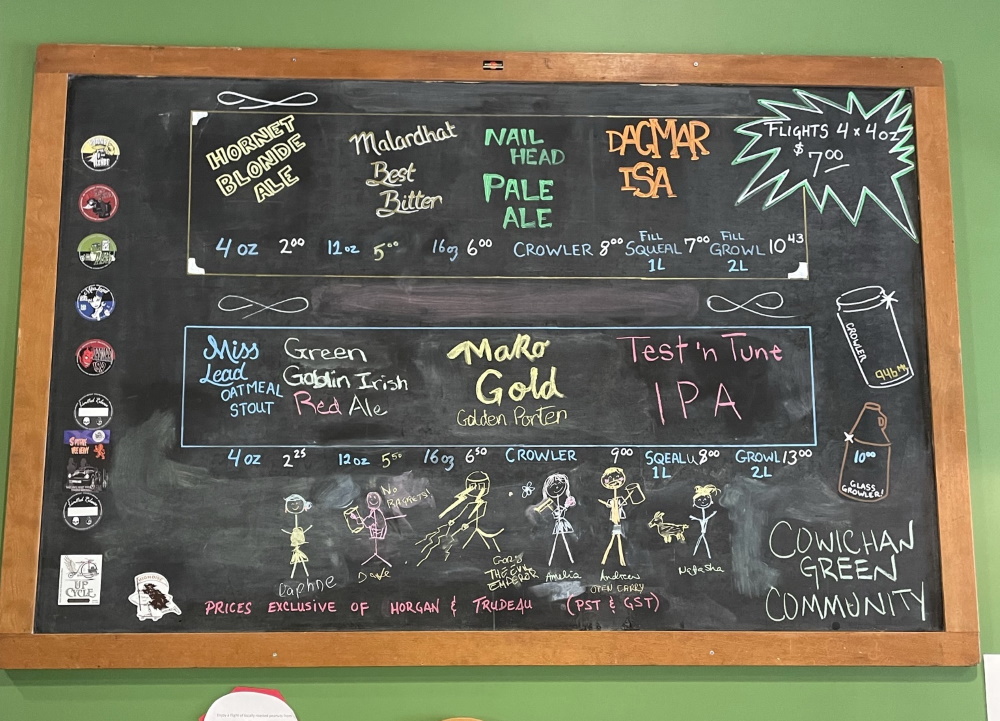 HORNET
BLONDE
ALE
Malardhat
Best
Bitter
NAIL
HEAD
PALE
ALE
DAGMAR
ISA
FLIGHTS 4 x 4oz
$7.00
4 oz 2.00 12 oz 5.00 16oz 6.00 CROWLER 8.00 FILL SQUEAL 7.00 FILL GROWL 10.43
1L 2L
Miss
Lead
OATMEAL
STOUT
Green
Goblin Irish
Red Ale
MaRo
Gold
Golden Porter
Test 'n Tune
IPA
CROWLER
946 ML
4 oz 2.25 12 oz 5.50 16oz 6.50 CROWLER 9.00 SQEALU 8.00 GROWL 13.00
1L 2L
10.00
GLASS
GROWLER!
NO
RAGRETS!
Daphne
Dave
GORD
THE EVIL
EMPEROR
Amelia
Andrew
OPEN CARRY
Natasha
COWICHAN
GREEN
COMMUNITY
UP
CYCLE
PRICES EXCLUSIVE OF HORGAN & TRUDEAU (PST & GST)